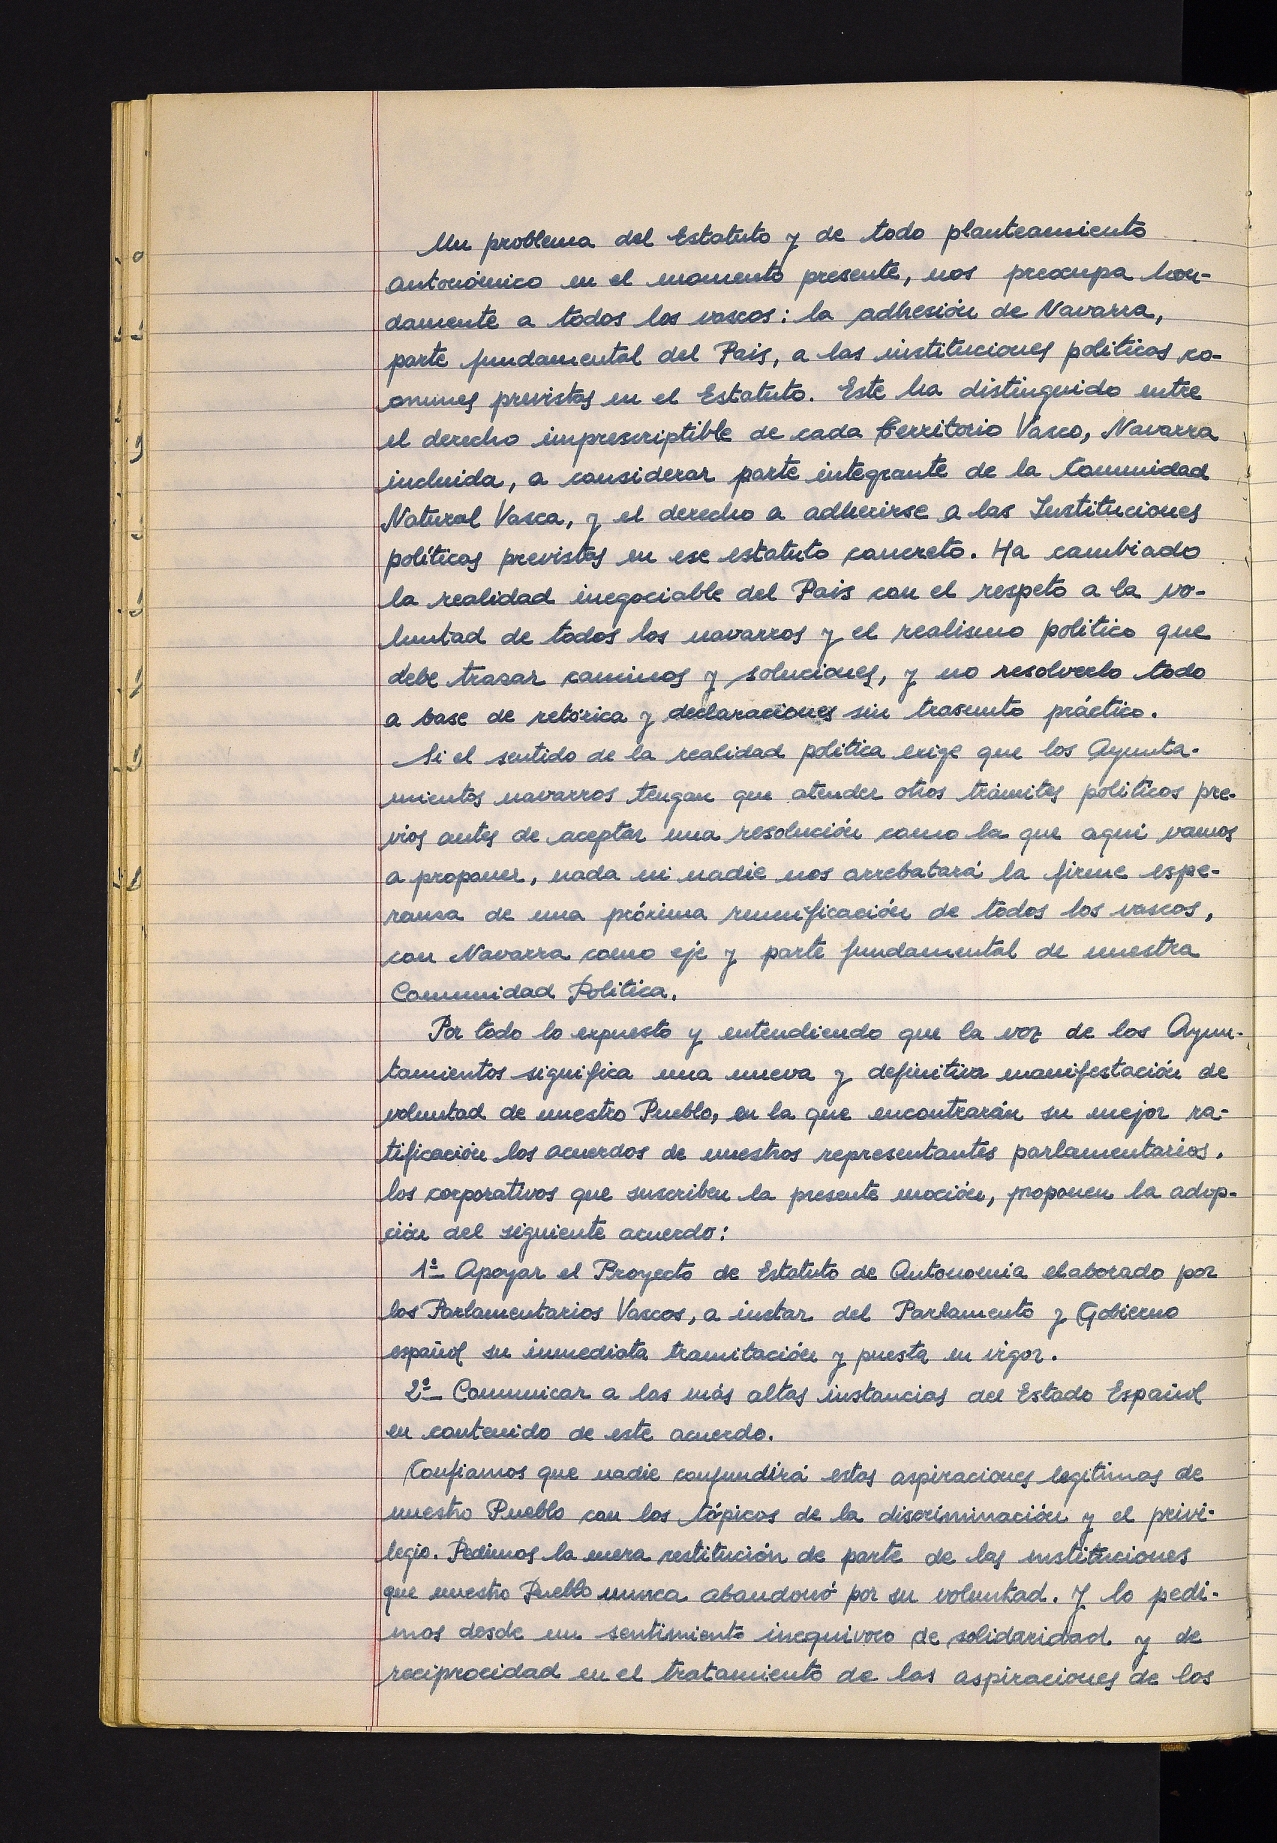 Un problema del Estatuto y de todo planteamiento
autonómico en el momento presente, nos preocupa hon-
damente a todos los vascos: la adhesión de Navarra,
parte fundamental del Pais, a las instituciones politicas co-
omunes previstas en el Estatuto. Este ha distinguido entre
el derecho imprescriptible de cada Territorio Vasco, Navarra
incluida, a considerar parte integrante de la Comunidad
Natural Vasca, y el derecho a adherirse a las Instituciones
políticas previstas en ese estatuto concreto. Ha cambiado
la realidad inegociable del Pais con el respeto a la vo-
luntad de todos los navarros y el realismo politico que
debe trasar caminos y soluciones, y no resolverlo todo
a base de retórica y declaraciones sin trasunto práctico.
Si el sentido de la realidad politica exige que los Ayunta-
mientos navarros tengan que atender otros trámites politicos pre-
vios antes de aceptar una resolución como la que aqui vamos
a proponer, nada ni nadie nos arrebatará la firme espe-
ransa de una próxima reunificación de todos los vascos,
con Navarra como eje y parte fundamental de nuestra
Comunidad Politica.
Por todo lo expuesto y entendiendo que la voz de los Ayun-
tamientos significa una nueva y definitiva manifestación de
voluntad de nuestro Pueblo, en la que encontrarán su mejor ra-
tificación los acuerdos de nuestros representantes parlamentarios,
los corporativos que suscriben la presente moción, proponen la adop-
ción del siguiente acuerdo:
1º Apoyar el Proyecto de Estatuto de Autonomia elaborado por
los Parlamentarios Vascos, a instar del Parlamento y Gobierno
español su inmediata tramitación y puesta en vigor.
2º Comunicar a las más altas instancias del Estado Español
en contenido de este acuerdo.
Confiamos que nadie confundirá estas aspiraciones legitimas de
nuestro Pueblo con los tópicos de la discriminación y el privi-
legio. Pedimos la mera restitución de parte de las instituciones
que nuestro Pueblo nunca abandonó por su voluntad. Y lo pedi-
mos desde un sentimiento inequivoco de solidaridad y de
reciprocidad en el tratamiento de las aspiraciones de los